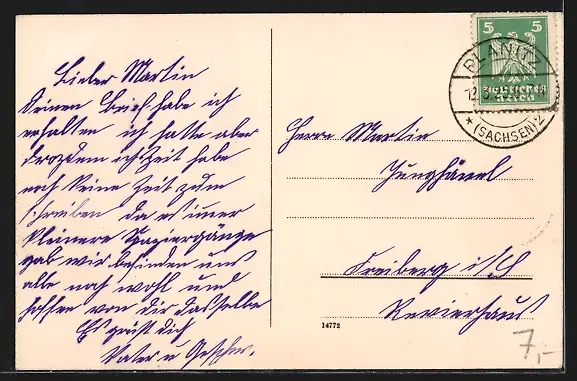 Lieber Martin
Deinen Brief habe ich
erhalten ich hatte aber
trozdem ich Zeit habe
noch keine Zeit zum
schreiben da es imer
kleinere Spaziergänge
gab wir befinden uns
alle noch wohl und
hoffen von dir dasselbe
Es grüßt dich
Vater u Geschw.
5 5
Deutsches
Reich
PLANITZ
* (SACHSEN) 2
Herrn Martin
Junghänel
Freiberg i/S
Revierhaus
14772
7,-